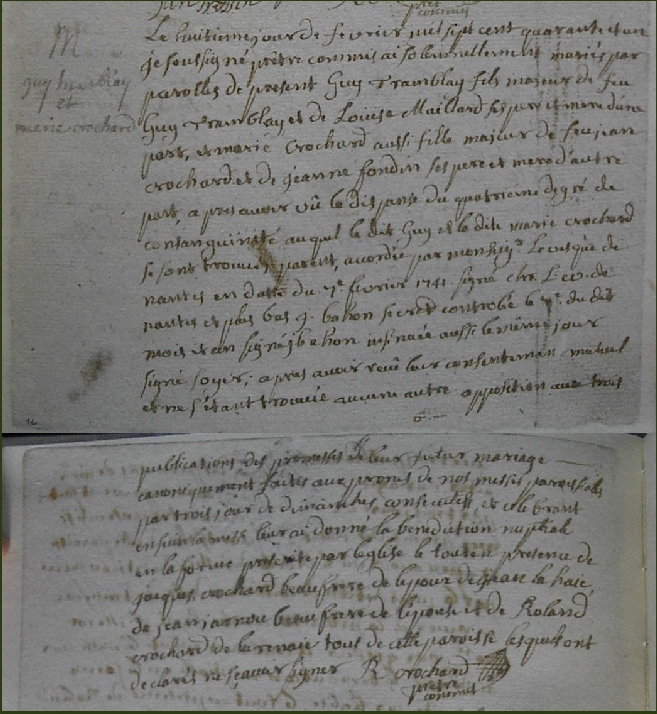 prêtre
commis
M
guy tramblay
et
marie crochard
Le huitieme jour de fevrier mil sept cent quarante et un
je soussigné prêtre commis ai solemnellement mariés par
parolles de present Guy Tramblay fils majeur de feu
Guy Tramblay et de Louise Maillard ses pere et mere d'une
part, et marie Crochard aussi fille majeur de feu jean
crochard et de jeanne fondin ses pere et mere d'autre
part, apres avoir vû le dispanse du quatrieme degré de
consanguinité auquel le dit Guy et le dite marie crochard
se sont trouvés parent, acordée par monseigr Levesque de
nantes en datte du 7e fevrier 1741 signé chr. L ev. de
nantes et plus bas j. bahon secret controlé 6 7e du dit
mois et an signé j bahon insinuée aussi le même jour
signé soyer; apres avoir receü leur consentemen mutuel
et ne s'étant trouvée aucune autre opposition aux trois
publications des promesses de leur futur mariage
canoniquement faites aux prones de nos messes paroissialles
par trois jour de dimanches consecutifs, et celebrant
ensuite la messe leur ai donné la benediction nuptiale
en la forme prescrite par l'eglise le tout en presence de
jacques crochard beaufrere de lepoux de jean la haie,
de jean jarnou beaufrere de lepouse et de Roland
crochard de la renaie tous de cette paroisse lesquels ont
declarés ne sçavoir signer R crochard
prêtre
commis